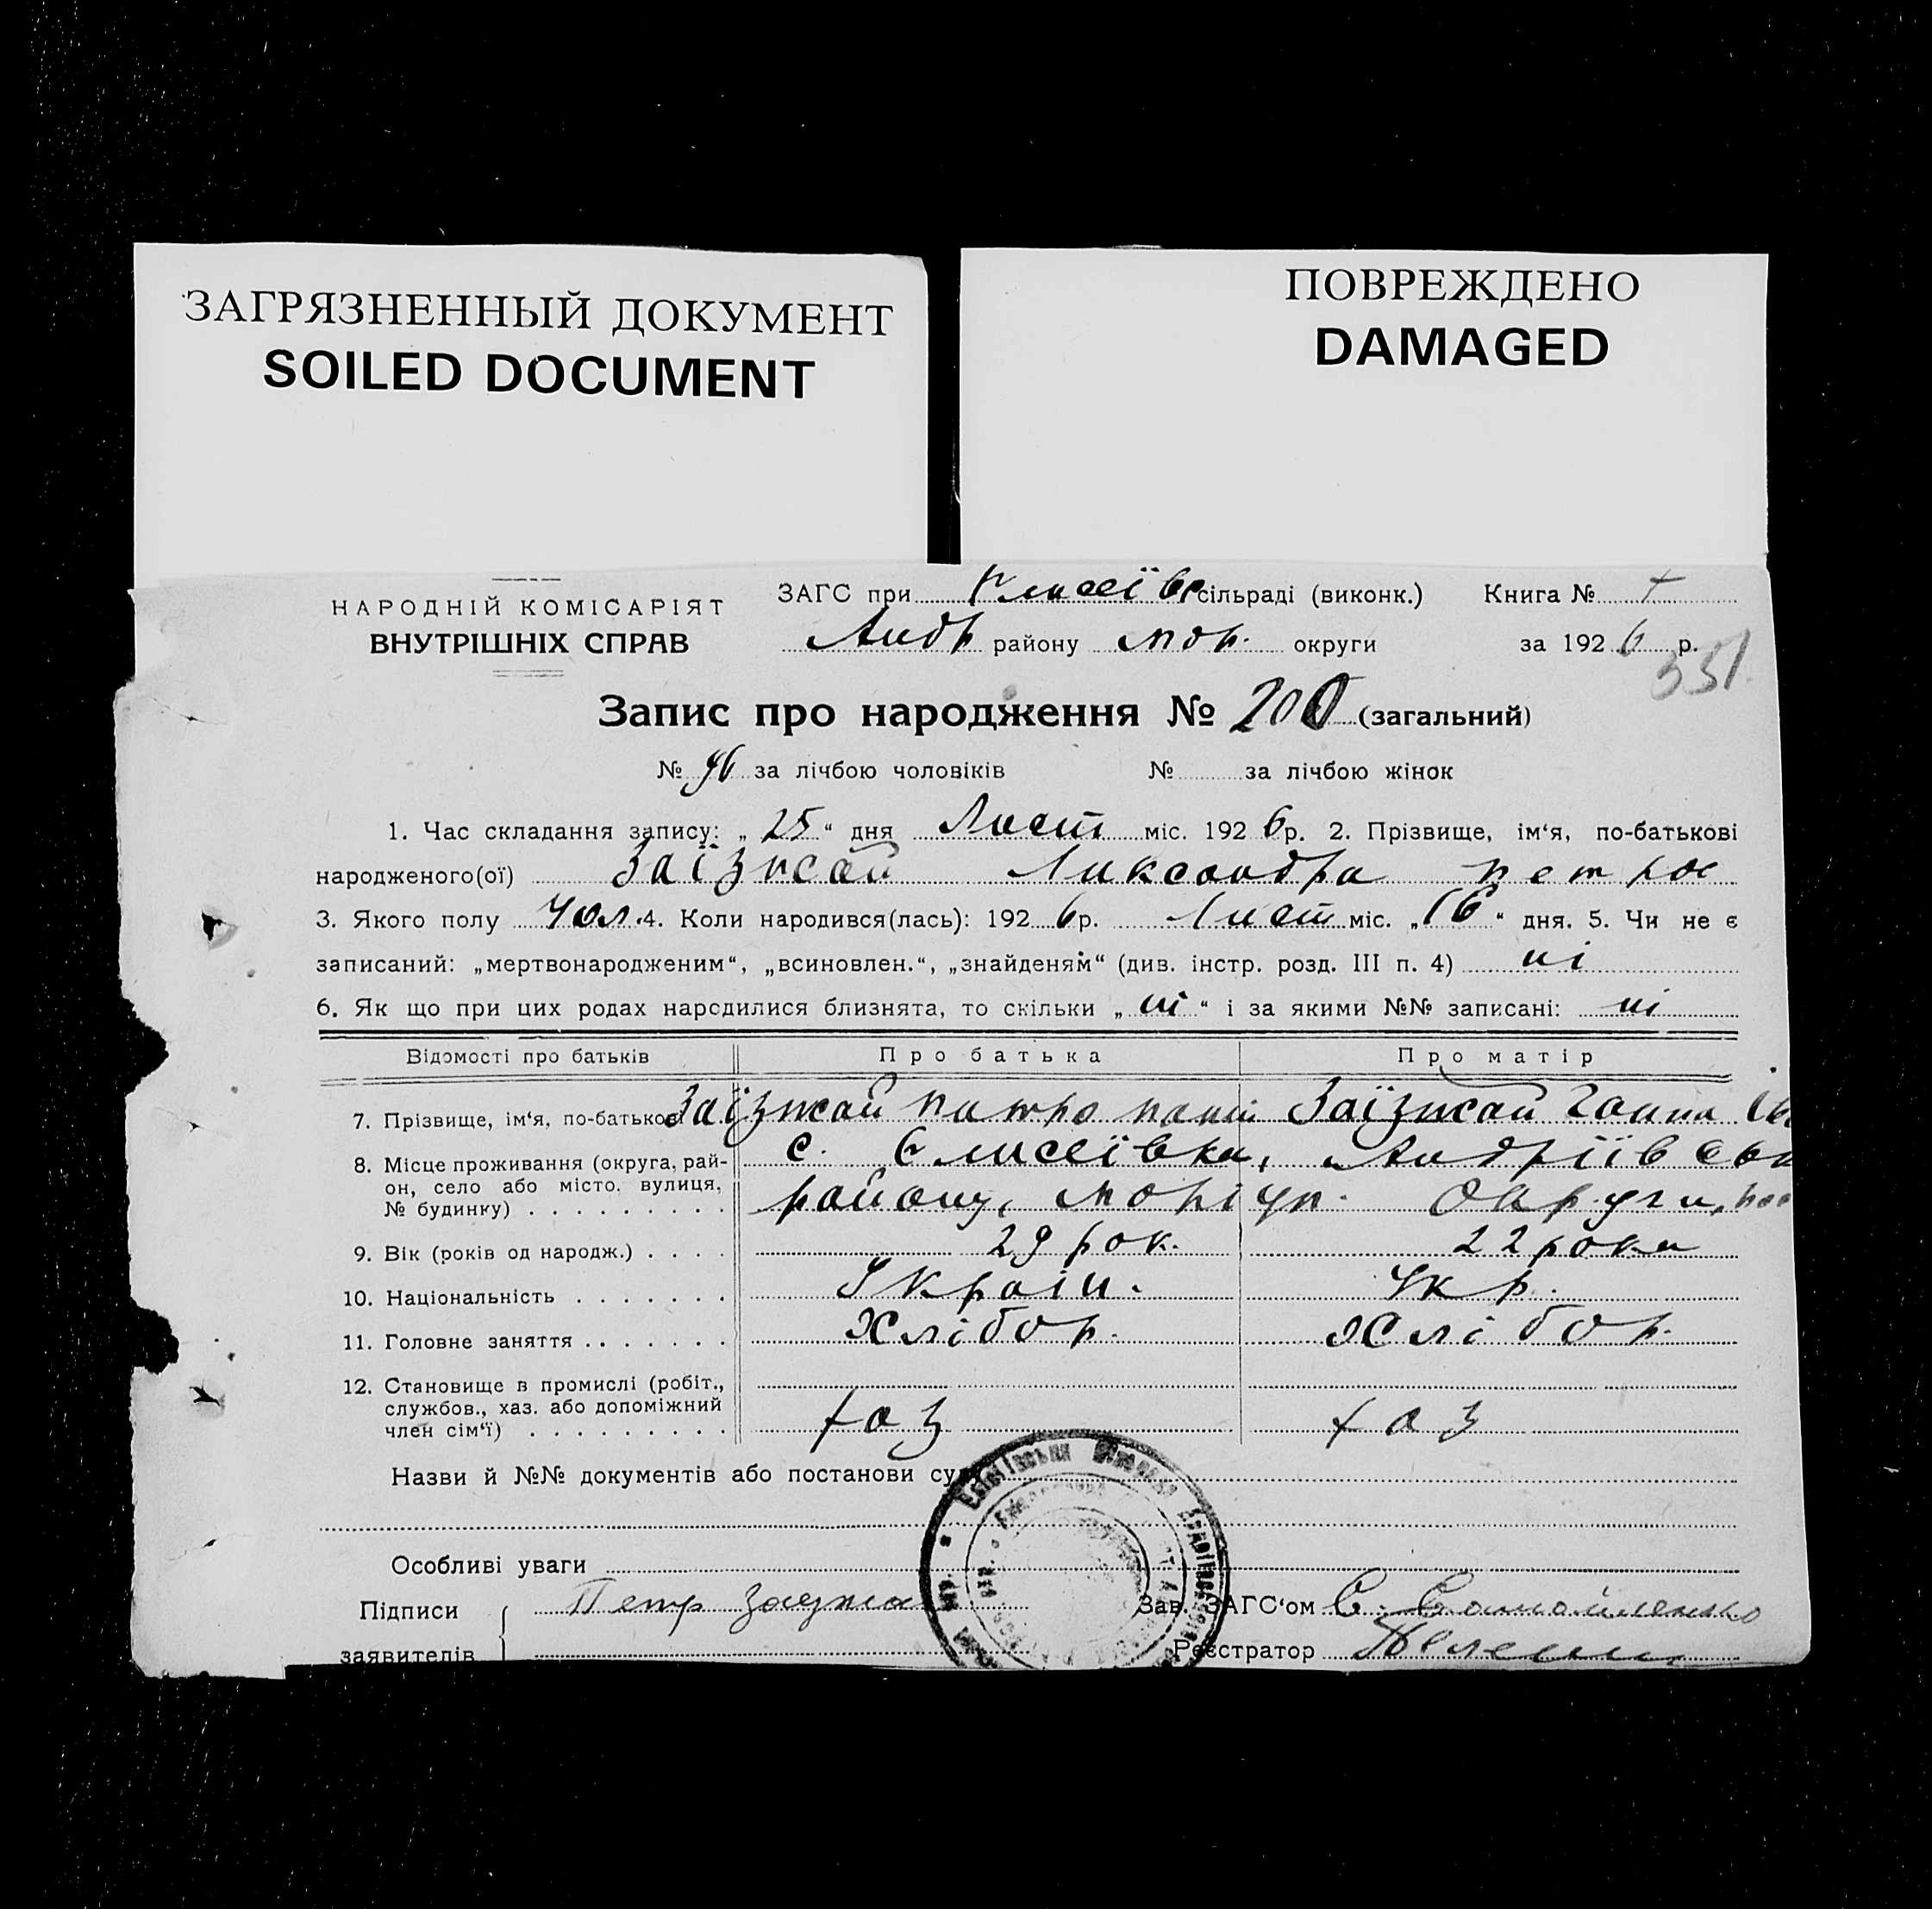 ЗАГРЯЗНЕННЫЙ ДОКУМЕНТ
SOILED DOCUMENT
ПОВРЕЖДЕНО
DAMAGED
НАРОДНІЙ КОМІСАРІЯТ
ВНУТРІШНІХ СПРАВ
ЗАГС при Єлисеївс сільраді (виконк.)
Андр району мор. округи
Книга №
за 1926 р.
351
Запис про народження № 200 (загальний)
№ 96 за лічбою чоловіків № за лічбою жінок
1. Час складання запису: „25“ дня Лист міс. 1926р. 2. Прізвище, ім‘я, по-батькові
народженого(ої) Заїзжай Ликсандра петров
3. Якого полу Чол. 4. Коли народився(лась): 1926р. Лист міс. „16“ дня. 5. Чи не є
записаний: „мертвонародженим“, „всиновлен.“, „знайденям“ (див. інстр. розд. III п. 4) ні
6. Як що при цих родах народилися близнята, то скільки „ні“ і за якими №№ записані: ні
Відомості про батьків Про батька Про матір
7. Прізвище, ім‘я, по-батькові Заїзжай питро Заїзжай Ганна
8. Місце проживання (округа, рай-
он, село або місто. вулиця,
№ будинку)
с. Єлисеївка, Андріївськ
району, моріуп. округи,
9. Вік (років од народж.) 29 рок. 22 роки
10. Національність Україн. Укр.
11. Головне заняття Хлібор. Хлібор.
12. Становище в промислі (робіт.,
службов., хаз. або допоміжний
член сім‘ї) хаз хаз
Назви й №№ документів або постанови су
Особливі уваги
Підписи Петр
заявителів
Зав. ЗАГС‘ом С. Самойленко
Реєстратор